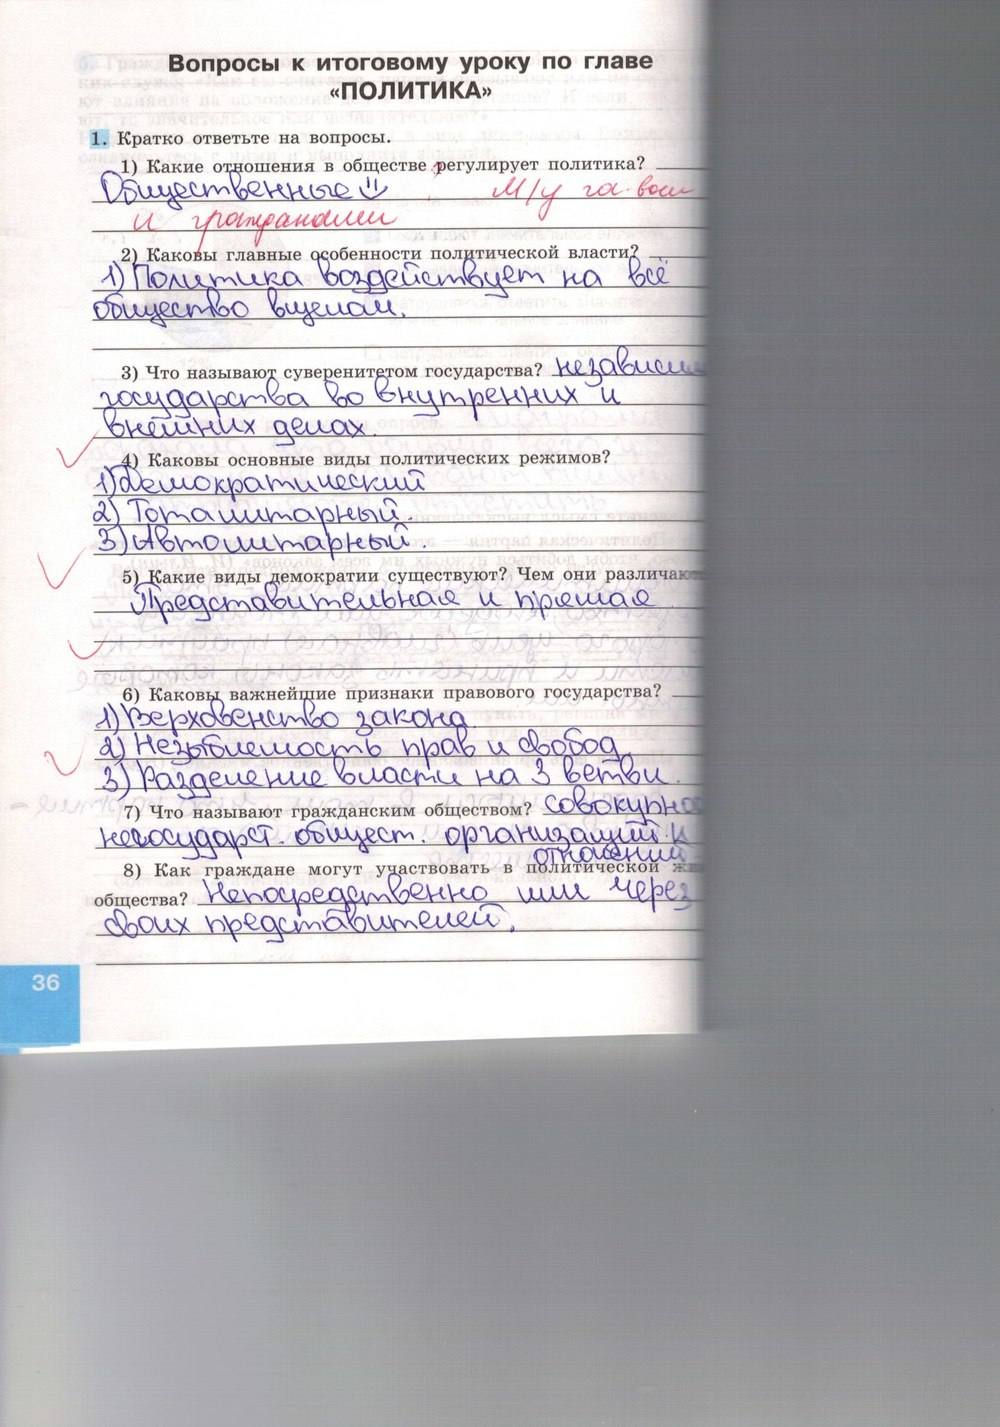 Вопросы к итоговому уроку по главе
«ПОЛИТИКА»
1. Кратко ответьте на вопросы.
1) Какие отношения в обществе регулирует политика?
Общественные м/у гос-вом
и гражданами
2) Каковы главные особенности политической власти?
1) Политика воздействует на всё
общество вцелом.
3) Что называют суверенитетом государства? независим
государства во внутренних и
внешних делах.
4) Каковы основные виды политических режимов?
1) Демократический
2) Тоталитарный.
3) Автолитарный.
5) Какие виды демократии существуют? Чем они различают
Представительная и прямая
6) Каковы важнейшие признаки правового государства?
1) Верховенство закона
2) Незыблемость прав и свобод
3) Разделение власти на 3 ветви.
7) Что называют гражданским обществом? совокупнос
негосударст. общест. организаций и
отношений
8) Как граждане могут участвовать в политической жи
общества? Непосредственно или через
своих представителей.
36